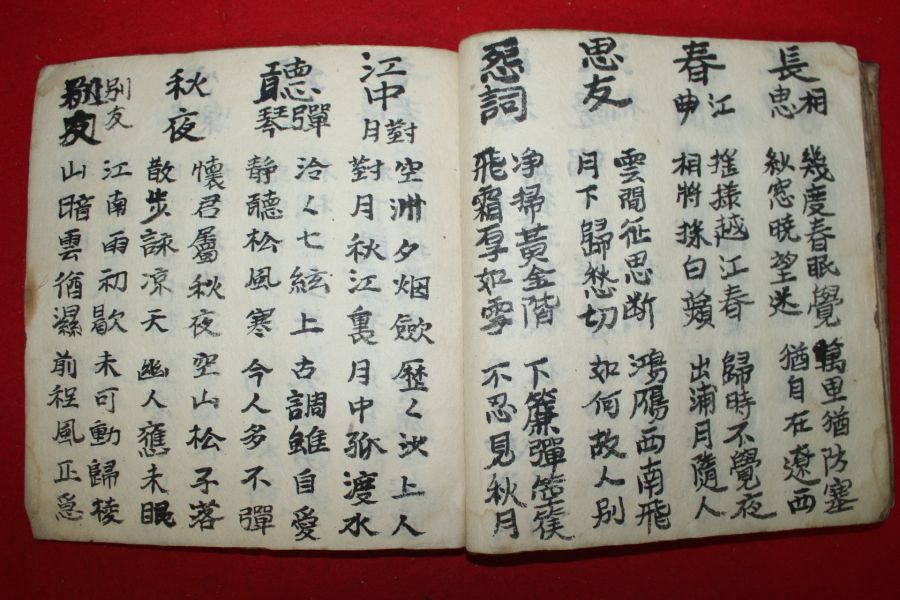 長相思
幾度春眠覺 萬里猶防塞
秋窓曉望迷 猶自在遼西
春江曲
搖揚越江春 歸時不覺夜
相將採白蘋 出浦月隨人
思友
雲間征思断 鴻鴈西南飛
月下歸愁切 如何故人別
怨詞
净掃黃金階 下簾彈箜篌
飛霜厚如雪 不忍見秋月
江中對月
空洲夕烟歛 歷々沙上人
對月秋江裏 月中孤渡水
聽彈琴
泠々七絃上 古調雖自愛
静聽松風寒 今人多不彈
秋夜
懷君屬秋夜 空山松子落
散步詠凉天 幽人應未眠
別友
別友
江南雨初歇 未可動歸棱
山暗雲猶濕 前程風正急